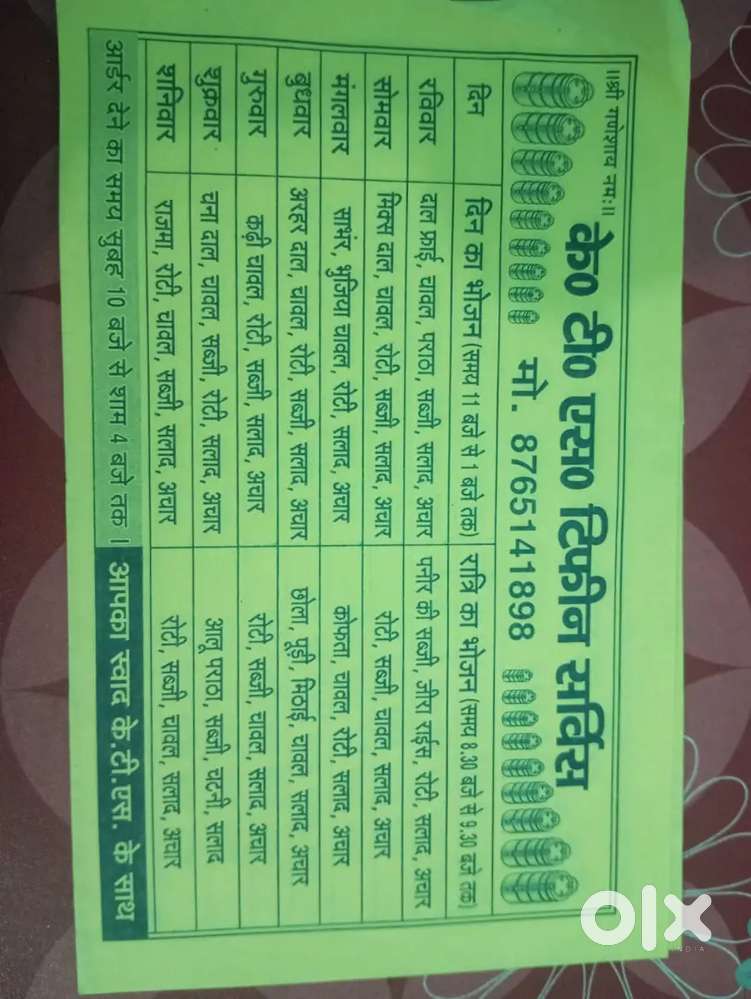 ॥श्री गणेशाय नमः॥
के० टी० एस० टिफीन सर्विस
मो. 8765141898
दिन दिन का भोजन (समय 11 बजे से 1 बजे तक) रात्रि का भोजन (समय 8.30 बजे से 9.30 बजे तक)
रविवार दाल फ्राई, चावल, पराठा, सब्जी, सलाद, अचार पनीर की सब्जी, जीरा राईस, रोटी, सलाद, अचार
सोमवार मिक्स दाल, चावल, रोटी, सब्जी, सलाद, अचार रोटी, सब्जी, चावल, सलाद, अचार
मंगलवार साभंर, भुजिया चावल, रोटी, सलाद, अचार कोफता, चावल, रोटी, सलाद, अचार
बुधवार अरहर दाल, चावल, रोटी, सब्जी, सलाद, अचार छोला, पूड़ी, मिठाई, चावल, सलाद, अचार
गुरुवार कढ़ी चावल, रोटी, सब्जी, सलाद, अचार रोटी, सब्जी, चावल, सलाद, अचार
शुक्रवार चना दाल, चावल, सब्जी, रोटी, सलाद, अचार आलू पराठा, सब्जी, चटनी, सलाद
शनिवार राजमा, रोटी, चावल, सब्जी, सलाद, अचार रोटी, सब्जी, चावल, सलाद, अचार
आर्डर देने का समय सुबह 10 बजे से शाम 4 बजे तक। आपका स्वाद के.टी.एस. के साथ
olx
INDIA